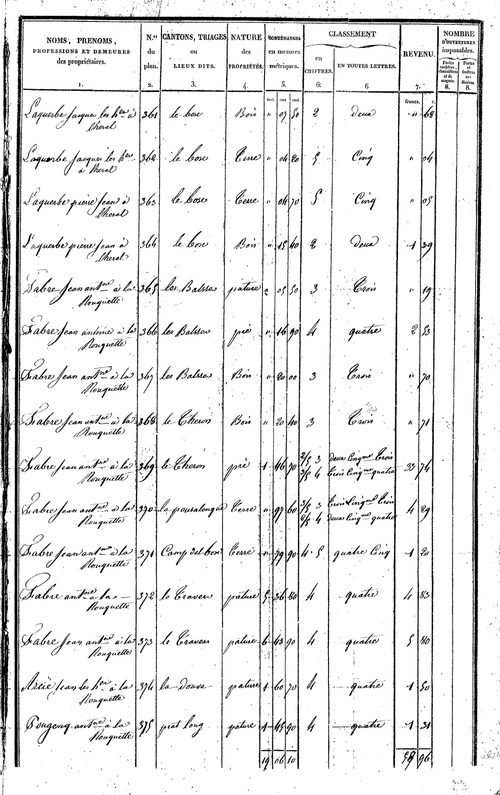 NOMS, PRENOMS, PROFESSIONS ET DEMEURES des propriétaires. | N.os du plan. | CANTONS, TRIAGES ou LIEUX DITS. | NATURE des PROPRIÉTÉS. | CONTENANCES en mesures métriques. | CLASSEMENT en CHIFFRES. | EN TOUTES LETTRES. | REVENU. | NOMBRE D'OUVERTURES imposables.
1. 2. 3. 4. 5. 6. 6. 7. 8. 8.
francs. c.
Laquerbe Jacques les hers à Lherat 361 le bosc Bois " 07 50 2 deux " 68
Laquerbe Jacques les hers à Lherat 362 le bosc Terre " 04 20 5 Cinq " 04
Laquerbe pierre Jean à Lherat 363 le bosc Terre " 04 70 5 Cinq " 05
Laquerbe pierre Jean à Lherat 364 le bosc Bois " 15 40 2 deux 1 39
Fabre Jean antne à la Rouquette 365 les Balssos pature " 05 50 3 Trois " 19
Fabre Jean antoine à la Rouquette 366 les Balssos pré " 16 90 4 quatre 2 53
Fabre Jean antne à la Rouquette 367 les Balssos Bois " 20 00 3 Trois " 70
Fabre Jean antne à la Rouquette 368 le Theron Bois " 20 40 3 Trois " 71
Fabre Jean antne à la Rouquette 369 le Theron pré 1 46 70 2/5 3 3/5 4 deux Cinqmes Trois Trois Cinqmes quatre 23 76
Fabre Jean antne à la Rouquette 370 Terre " 97 60 3/5 3 2/5 4 Trois Cinqmes Trois deux Cinqmes quatre 4 29
Fabre Jean antne à la Rouquette 371 Camp del bon Terre " 79 90 4.5 quatre Cinq 1 20
Fabre antne à la Rouquette 372 le Travers pature 5 36 80 4 quatre 4 83
Fabre Jean antne à la Rouquette 373 le Travers pature 6 43 90 4 quatre 5 80
Jean les hers à la Rouquette 374 la douve pature 1 60 70 4 quatre 1 50
Pougenq antne à la Rouquette 375 prat long pature 1 45 90 4 quatre 1 31
19 06 10 58 96